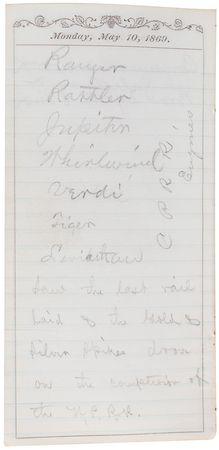 Monday, May 10, 1869.
Ranger
Rattler
Jupiter
Whirlwind
Verdi
Tiger
Leviathan
C P R R
Engines
Saw the last rail
laid & the Gold &
Silver Spikes drove
on the completion of
the P.R.R.